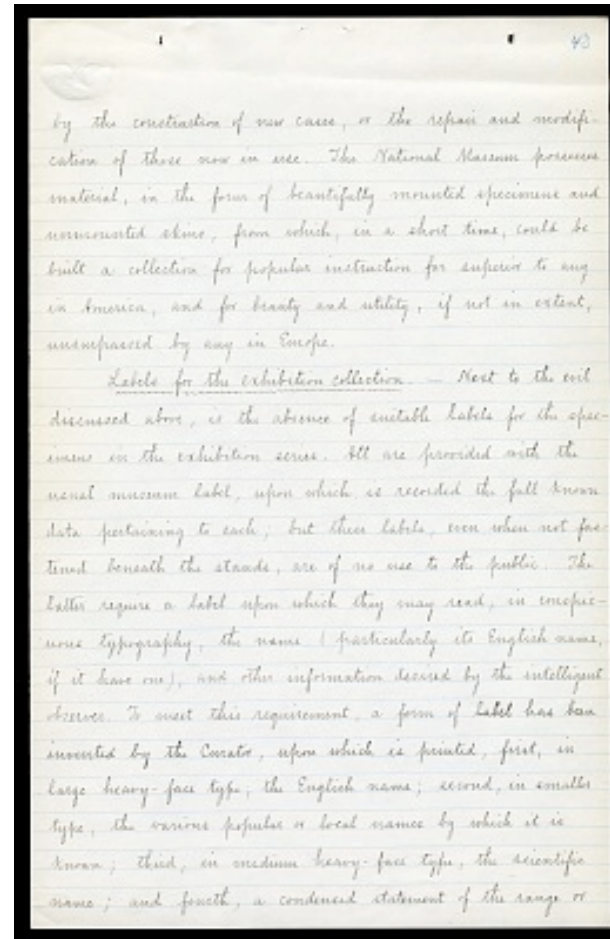 43
by the construction of new cases, or the repair and modifi-
cation of those now in use. The National Museum possesses
material, in the form of beautifully mounted specimens and
unmounted skins, from which, in a short time, could be
built a collection for popular instruction far superior to any
in America, and for beauty and utility, if not in extent,
unsurpassed by any in Europe.
Labels for the exhibition collection. — Next to the evil
discussed above, is the absence of suitable labels for the spec-
imens in the exhibition series. All are provided with the
usual museum label, upon which is recorded the full known
data pertaining to each; but these labels, even when not fas-
tened beneath the stands, are of no use to the public. The
latter require a label upon which they may read, in conspic-
uous typography, the name (particularly its English name,
if it have one), and other information desired by the intelligent
observer. To meet this requirement, a form of label has been
invented by the Curator, upon which is printed, first, in
large heavy-face type, the English name; second, in smaller
type, the various popular or local names by which it is
known; third, in medium heavy-face type, the scientific
name; and fourth, a condensed statement of the range or